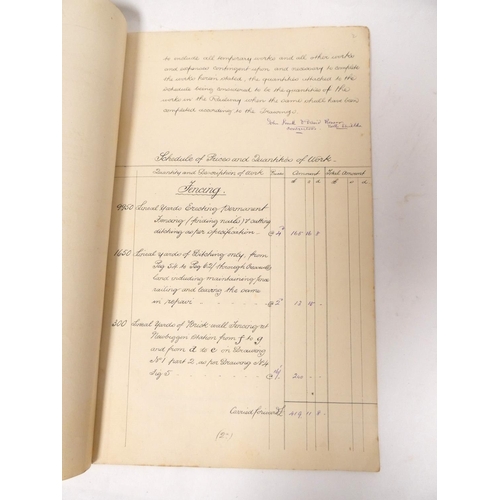 to include all temporary works and all other works
and expenses contingent upon and necessary to complete
the works herein stated, the quantities attached to the
Schedule being considered to be the quantities of the
works in the Railway when the same shall have been
completed according to the Drawings.
Schedule of Prices and Quantities of Work.
Quantity and Description of Work Price Amount Total Amount
£ s d £ s d
Fencing.
9950 Lineal Yards Erecting Permanent
Fencing (finding nails) & cutting
ditching as per Specification @ 4d 165 16 8
1650 Lineal yards of Ditching only, from
Peg 54 to Peg 62 through
land including maintaining fence
railing and leaving the same
in repair @ 2d 13 15 -
300 Lineal Yards of Brick wall Fencing at
Newbiggin Station from f to g
and from d to e on Drawing
No 1 part 2, as per Drawing No 4
Fig 5 @ 16/- 240 - -
Carried forward £ 419 11 8